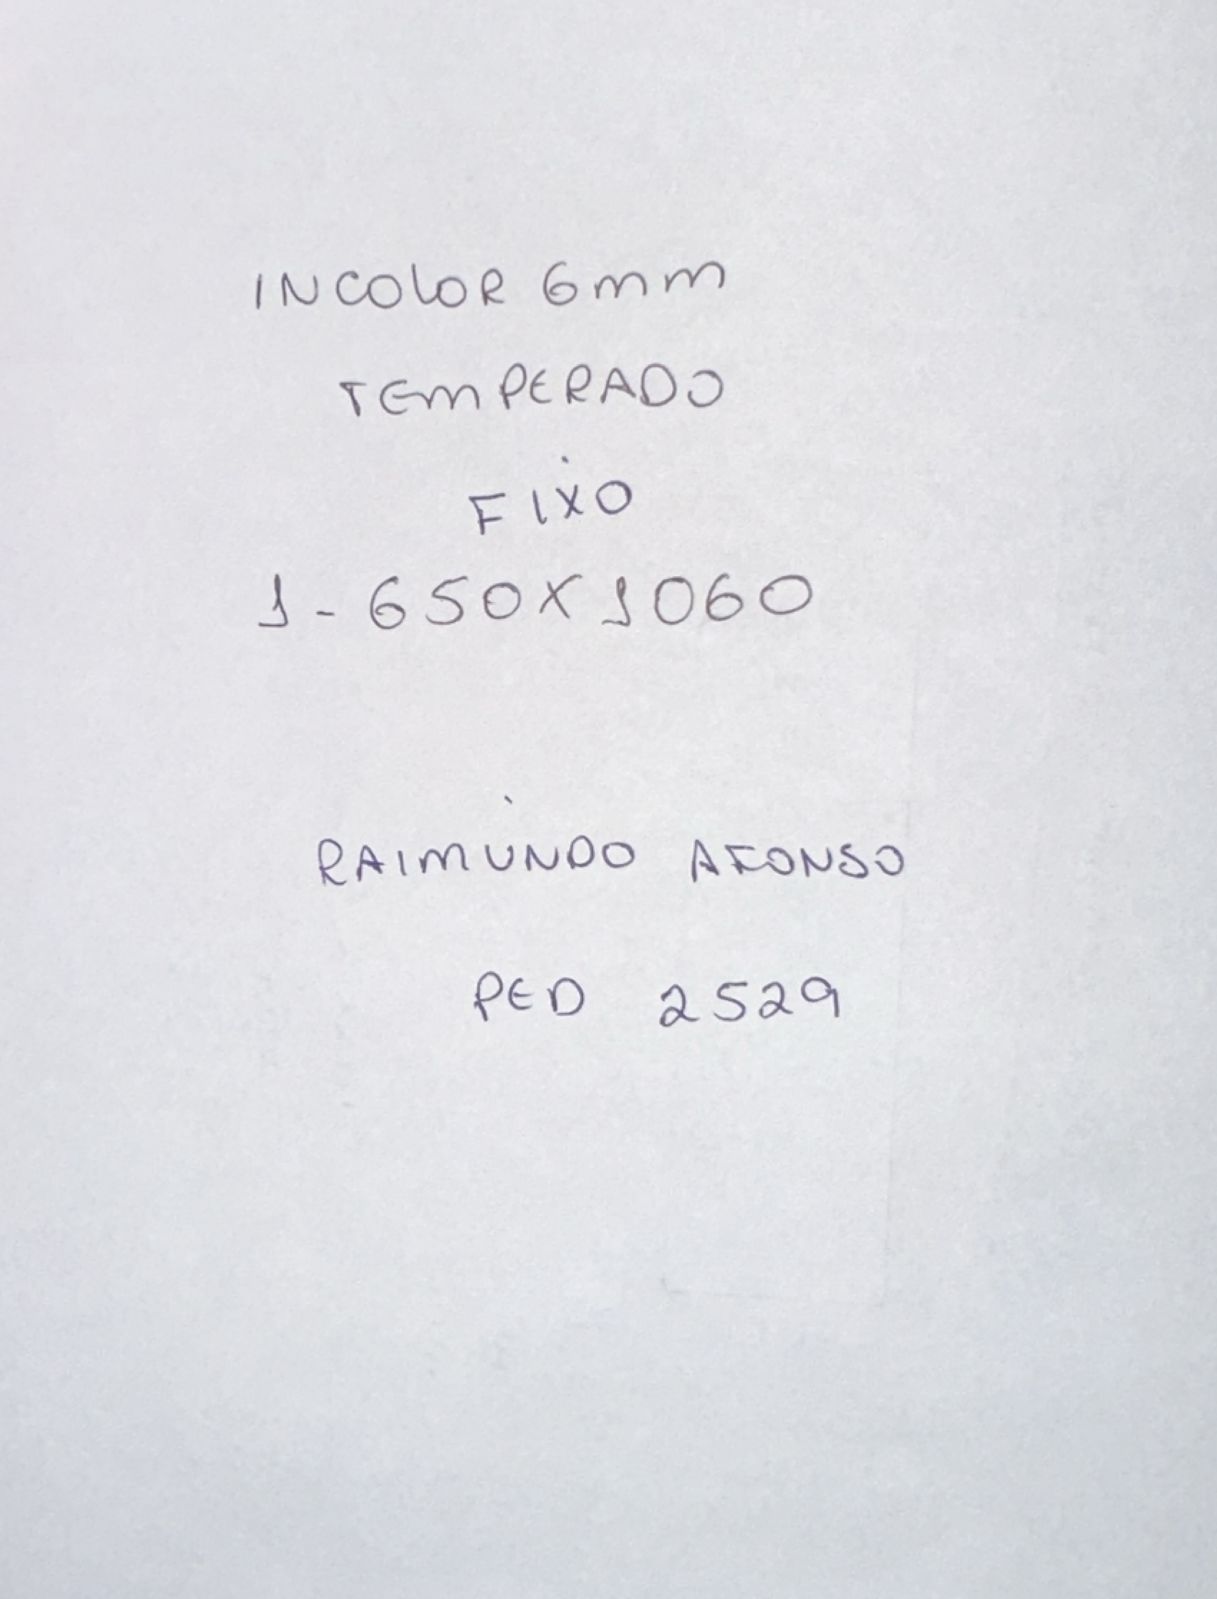 INCOLOR 6mm
TEMPERADO
FIXO
1-650X1060
RAIMUNDO AFONSO
PED 2529